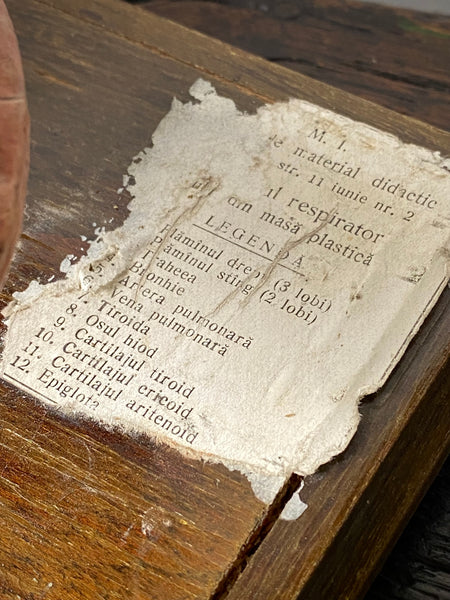 M. I.
de material didactic
str. 11 iunie nr. 2
ul respirator
din masă plastică
LEGENDA
Plămînul drept (3 lobi)
Plămînul stîng (2 lobi)
Traheea
5. Bronhie
6. Artera pulmonară
7. Vena pulmonară
8. Tiroida
9. Osul hiod
10. Cartilajul tiroid
11. Cartilajul cricoid
12. Cartilajul aritenoid
Epiglota